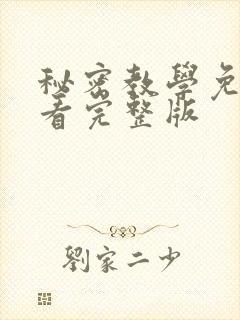 秘密教學免
看完整版
劉家二少